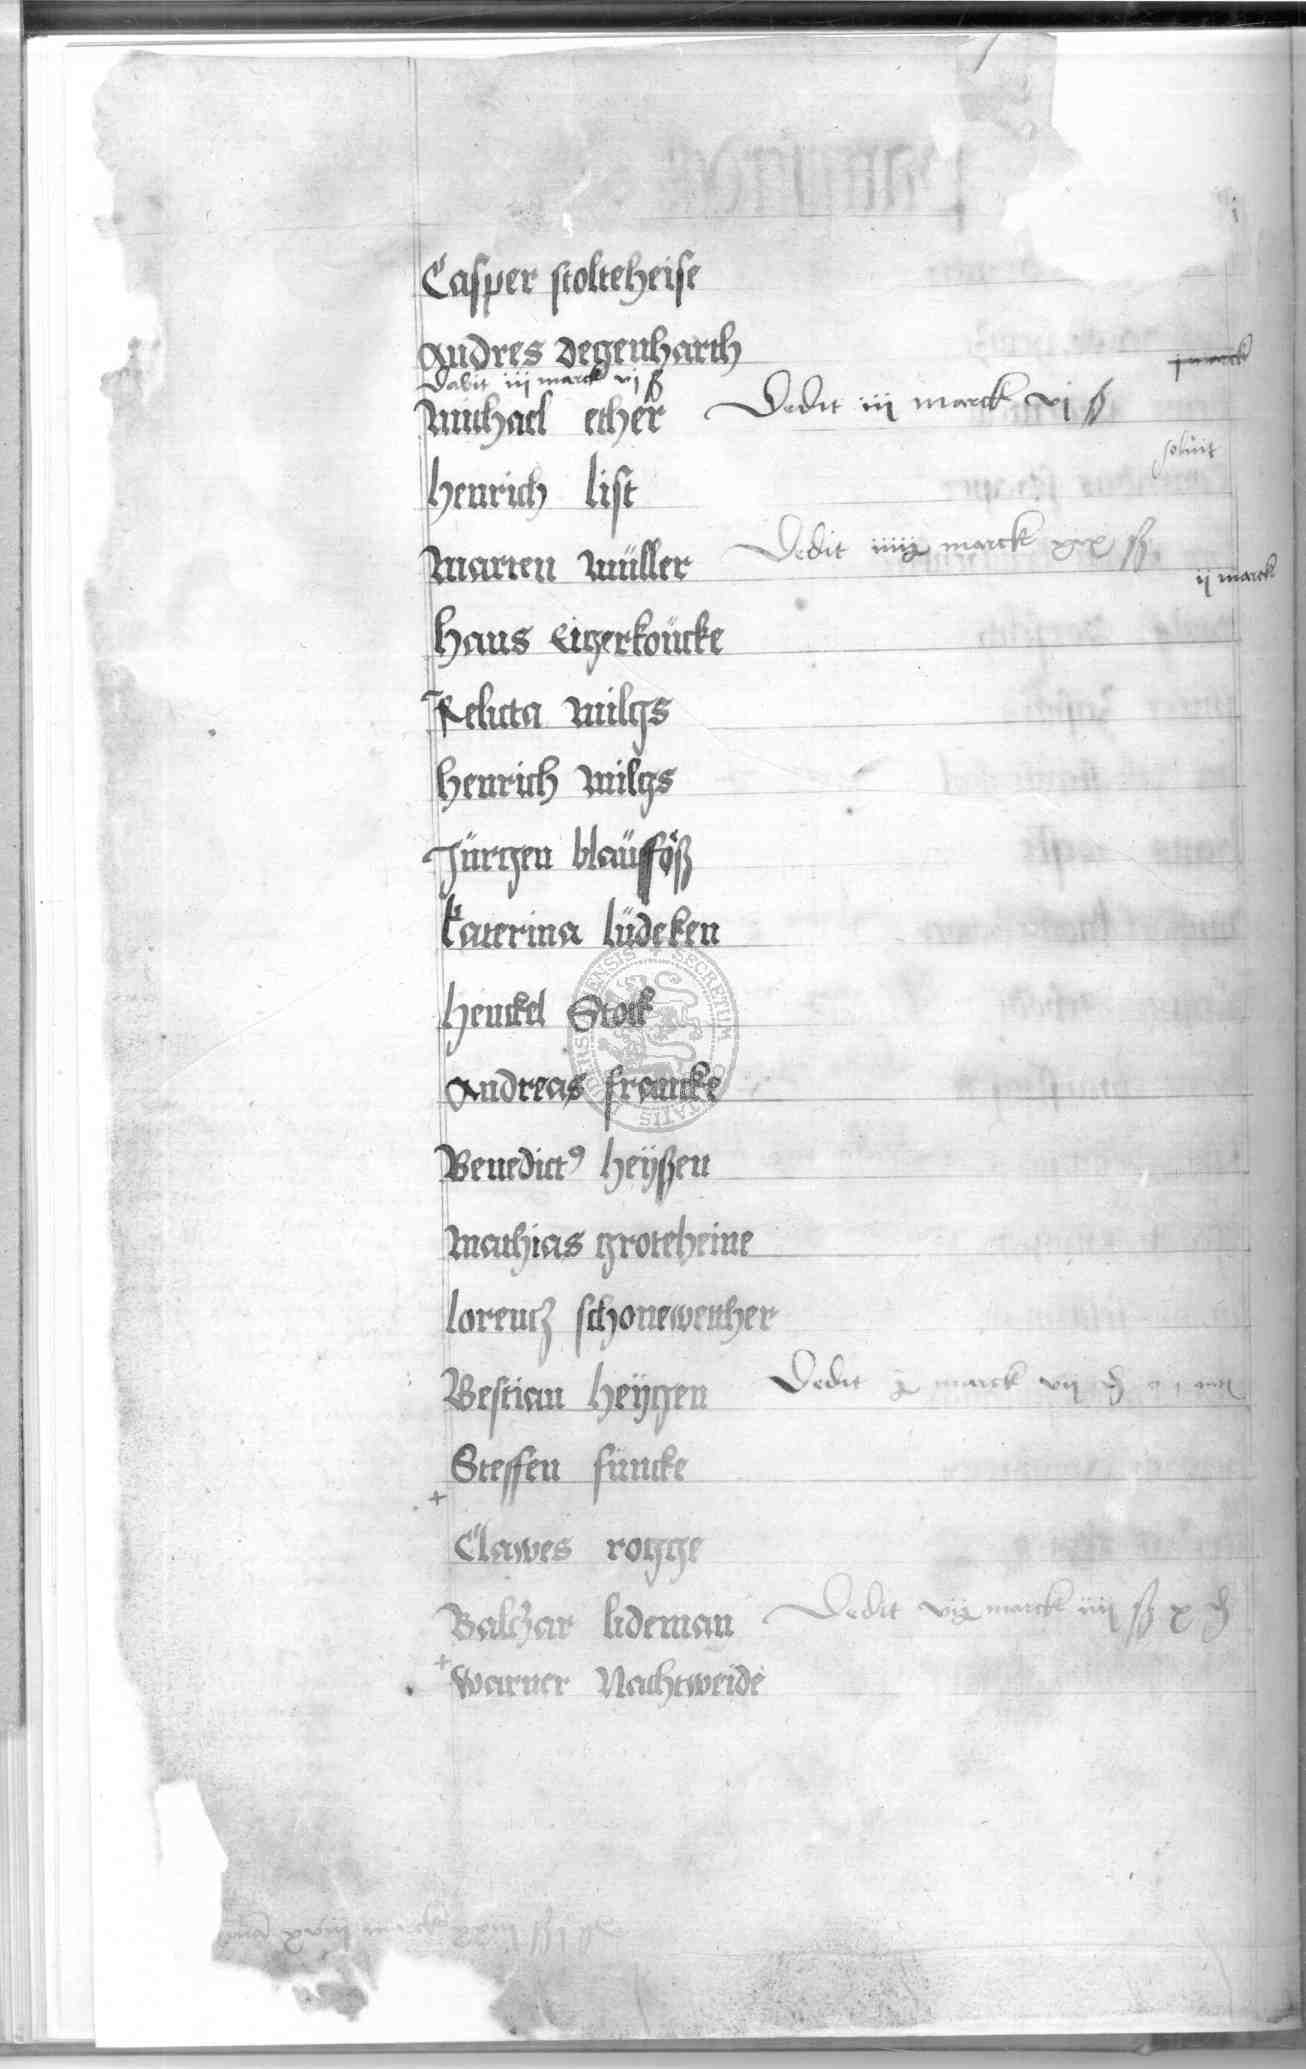 Casper stolteheise
Andres Degenharth
j marck
Dabit iij marck vj ß
Michael ether Dedit iij marck vj ß
soluit
Henrich list
Marten müller Dedit marck xix ß
ij marck
Hans Eigerkoücke
Relicta milgs
Henrich milgs
Jürgen blaüfföß
Katerina lüdeken
Henckel Stock
Andreas francke
Benedictꝰ heÿßen
Mathias groteheine
lorentz schonewether
Bestian heÿgen Dedit marck vij
Steffen füncke
+
Clawes rogge
Baltzar lideman Dedit marck iiij ß x ₰
+
Warner Nachtweide